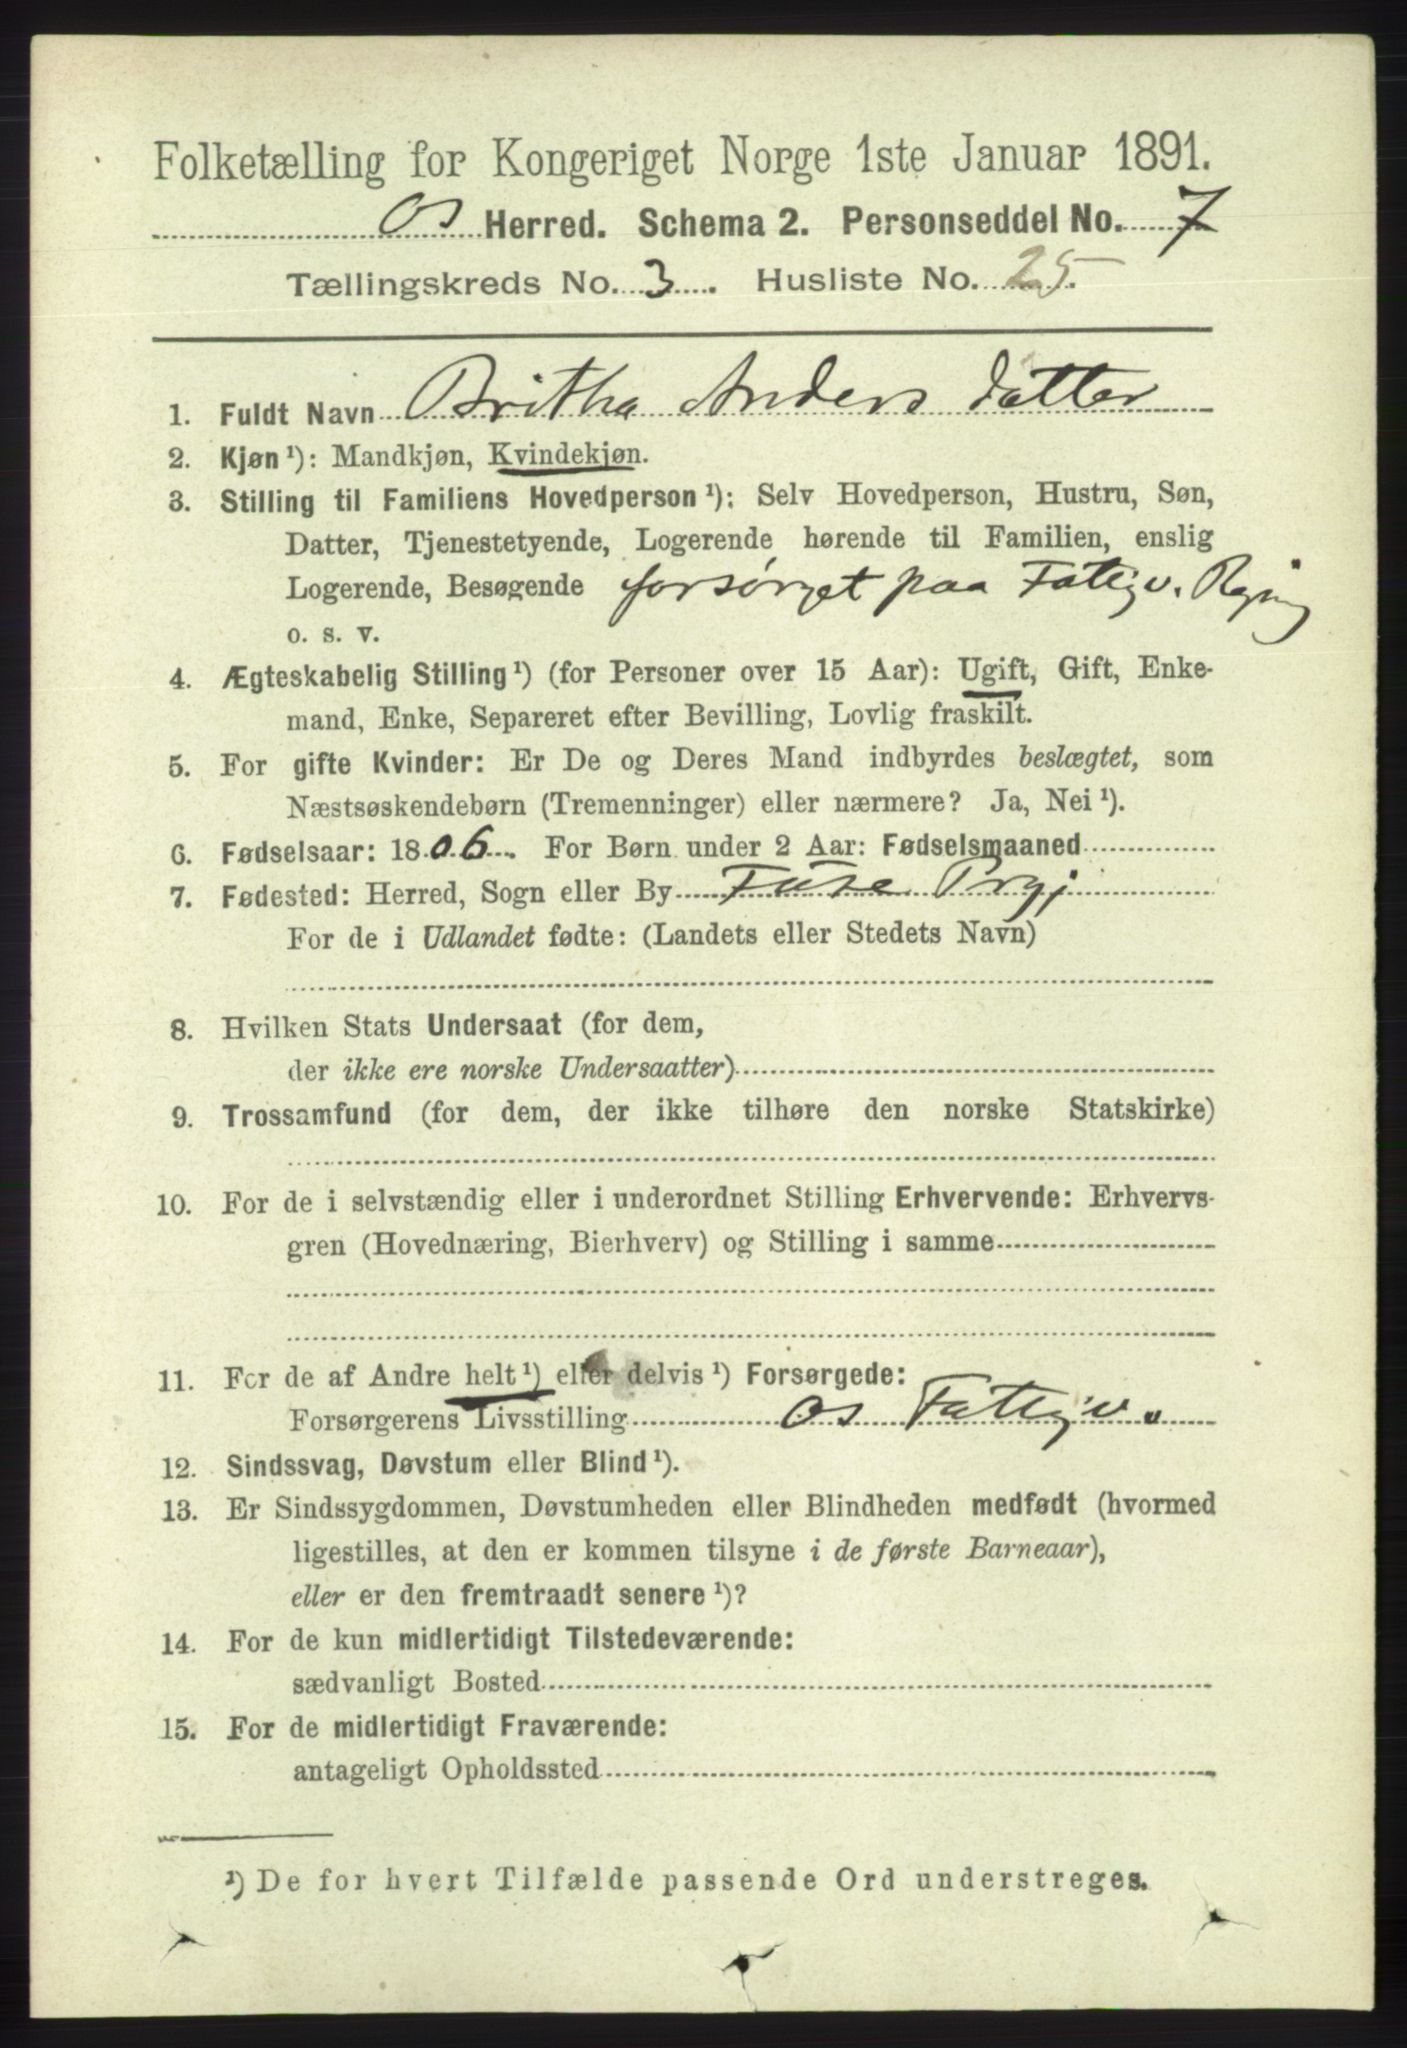 Folketælling for Kongeriget Norge 1ste Januar 1891.
Os Herred. Schema 2. Personseddel No. 7
Tællingskreds No. 3. Husliste No. 25.
1. Fuldt Navn Britha Anders datter
2. Kjøn ¹): Mandkjøn, Kvindekjøn.
3. Stilling til Familiens Hovedperson ¹): Selv Hovedperson, Hustru, Søn,
Datter, Tjenestetyende, Logerende hørende til Familien, enslig
Logerende, Besøgende forsørget paa Fattigv. Regning
o. s. v.
4. Ægteskabelig Stilling ¹) (for Personer over 15 Aar): Ugift, Gift, Enke-
mand, Enke, Separeret efter Bevilling, Lovlig fraskilt.
5. For gifte Kvinder: Er De og Deres Mand indbyrdes beslægtet, som
Næstsøskendebørn (Tremenninger) eller nærmere? Ja, Nei ¹).
6. Fødselsaar: 1806. For Børn under 2 Aar: Fødselsmaaned
7. Fødested: Herred, Sogn eller By Fuse Prgj
For de i Udlandet fødte: (Landets eller Stedets Navn)
8. Hvilken Stats Undersaat (for dem,
der ikke ere norske Undersaatter)
9. Trossamfund (for dem, der ikke tilhøre den norske Statskirke)
10. For de i selvstændig eller i underordnet Stilling Erhvervende: Erhvervs-
gren (Hovednæring, Bierhverv) og Stilling i samme
11. For de af Andre helt ¹) eller delvis ¹) Forsørgede:
Forsørgerens Livsstilling Os Fattigv.
12. Sindssvag, Døvstum eller Blind ¹).
13. Er Sindssygdommen, Døvstumheden eller Blindheden medfødt (hvormed
ligestilles, at den er kommen tilsyne i de første Barneaar),
eller er den fremtraadt senere ¹)?
14. For de kun midlertidigt Tilstedeværende:
sædvanligt Bosted
15. For de midlertidigt Fraværende:
antageligt Opholdssted
¹) De for hvert Tilfælde passende Ord understreges.